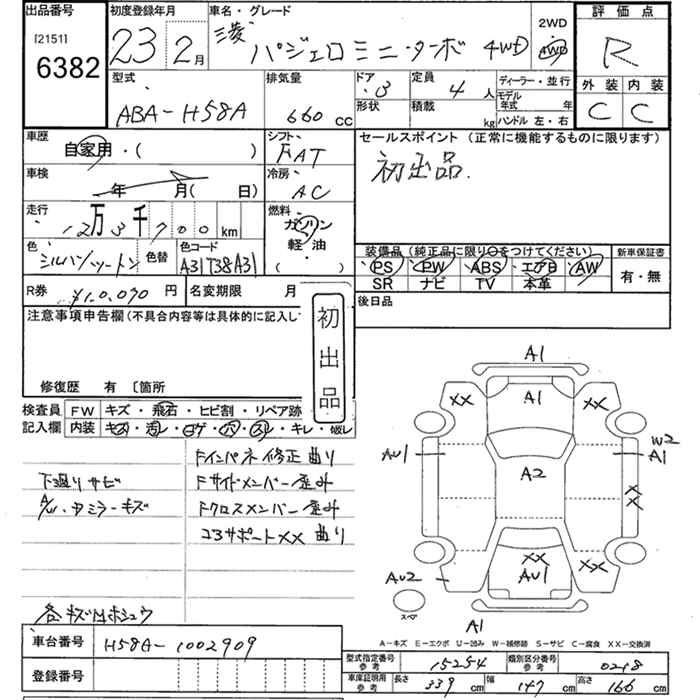 出品番号 初度登録年月 車名・グレード 2WD 評価点
[2151]
6382 23年 2月 三菱 パジェロミニ・ターボ 4WD 4WD R
型式 排気量 ドア 定員 ディーラー・並行 外装 内装
ABA-H58A 660cc 3 4人 モデル年式 年 C C
形状 積載 kg ハンドル 左・右
車歴 シフト セールスポイント（正常に機能するものに限ります）
自家用・( ) FAT 初出品.
車検 冷房
年 月( 日) AC
走行 燃料
12万3千700km ガソリン
色 色替 色コード 軽・油 装備品（純正品に限り○をつけてください） 新車保証書
シルバツートン A31T38A31 ( ) PS PW ABS エアB AW 有・無
SR ナビ TV 本革
R券 ¥10,070円 名変期限 月 後日品
注意事項申告欄(不具合内容等は具体的に記入し 初出品
修復歴 有〔箇所
検査員 FW キズ・飛石・ヒビ割・リペア跡
記入欄 内装 キズ・汚レ・コゲ・穴・スレ・キレ・破レ
Fインパネ修正曲り
下廻りサビ Fサイドメンバー歪み
A/W・ミラーキズ Fクロスメンバー歪み
コアサポートXX曲り
各キズ補シュウ
A1
A1
XX XX
AU1 A2 W2
A1
XX
XX XX
AU2 AU1
スペア A1
A-キズ E-エクボ U-凹み W-補修跡 S-サビ C-腐食 XX-交換済
車台番号 H58A-1002909
型式指定番号 参考 15254 類別区分番号 参考 0218
登録番号 車庫証明用 参考 長さ 339cm 幅 147cm 高さ 166cm